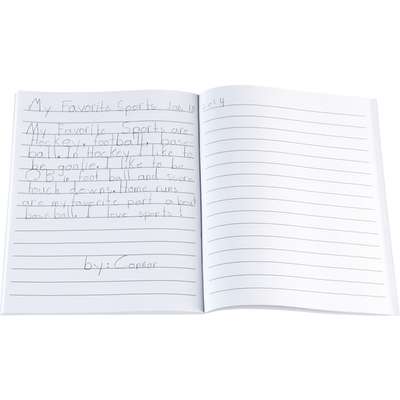 My Favorite Sports
My Favorite Sports are
Hockey, football, base
ball. In Hockey I like to
be goalie. I like to be
QB in foot ball and score
touch downs. Home runs
are my favorite part about
baseball. I love sports!
by: Connor